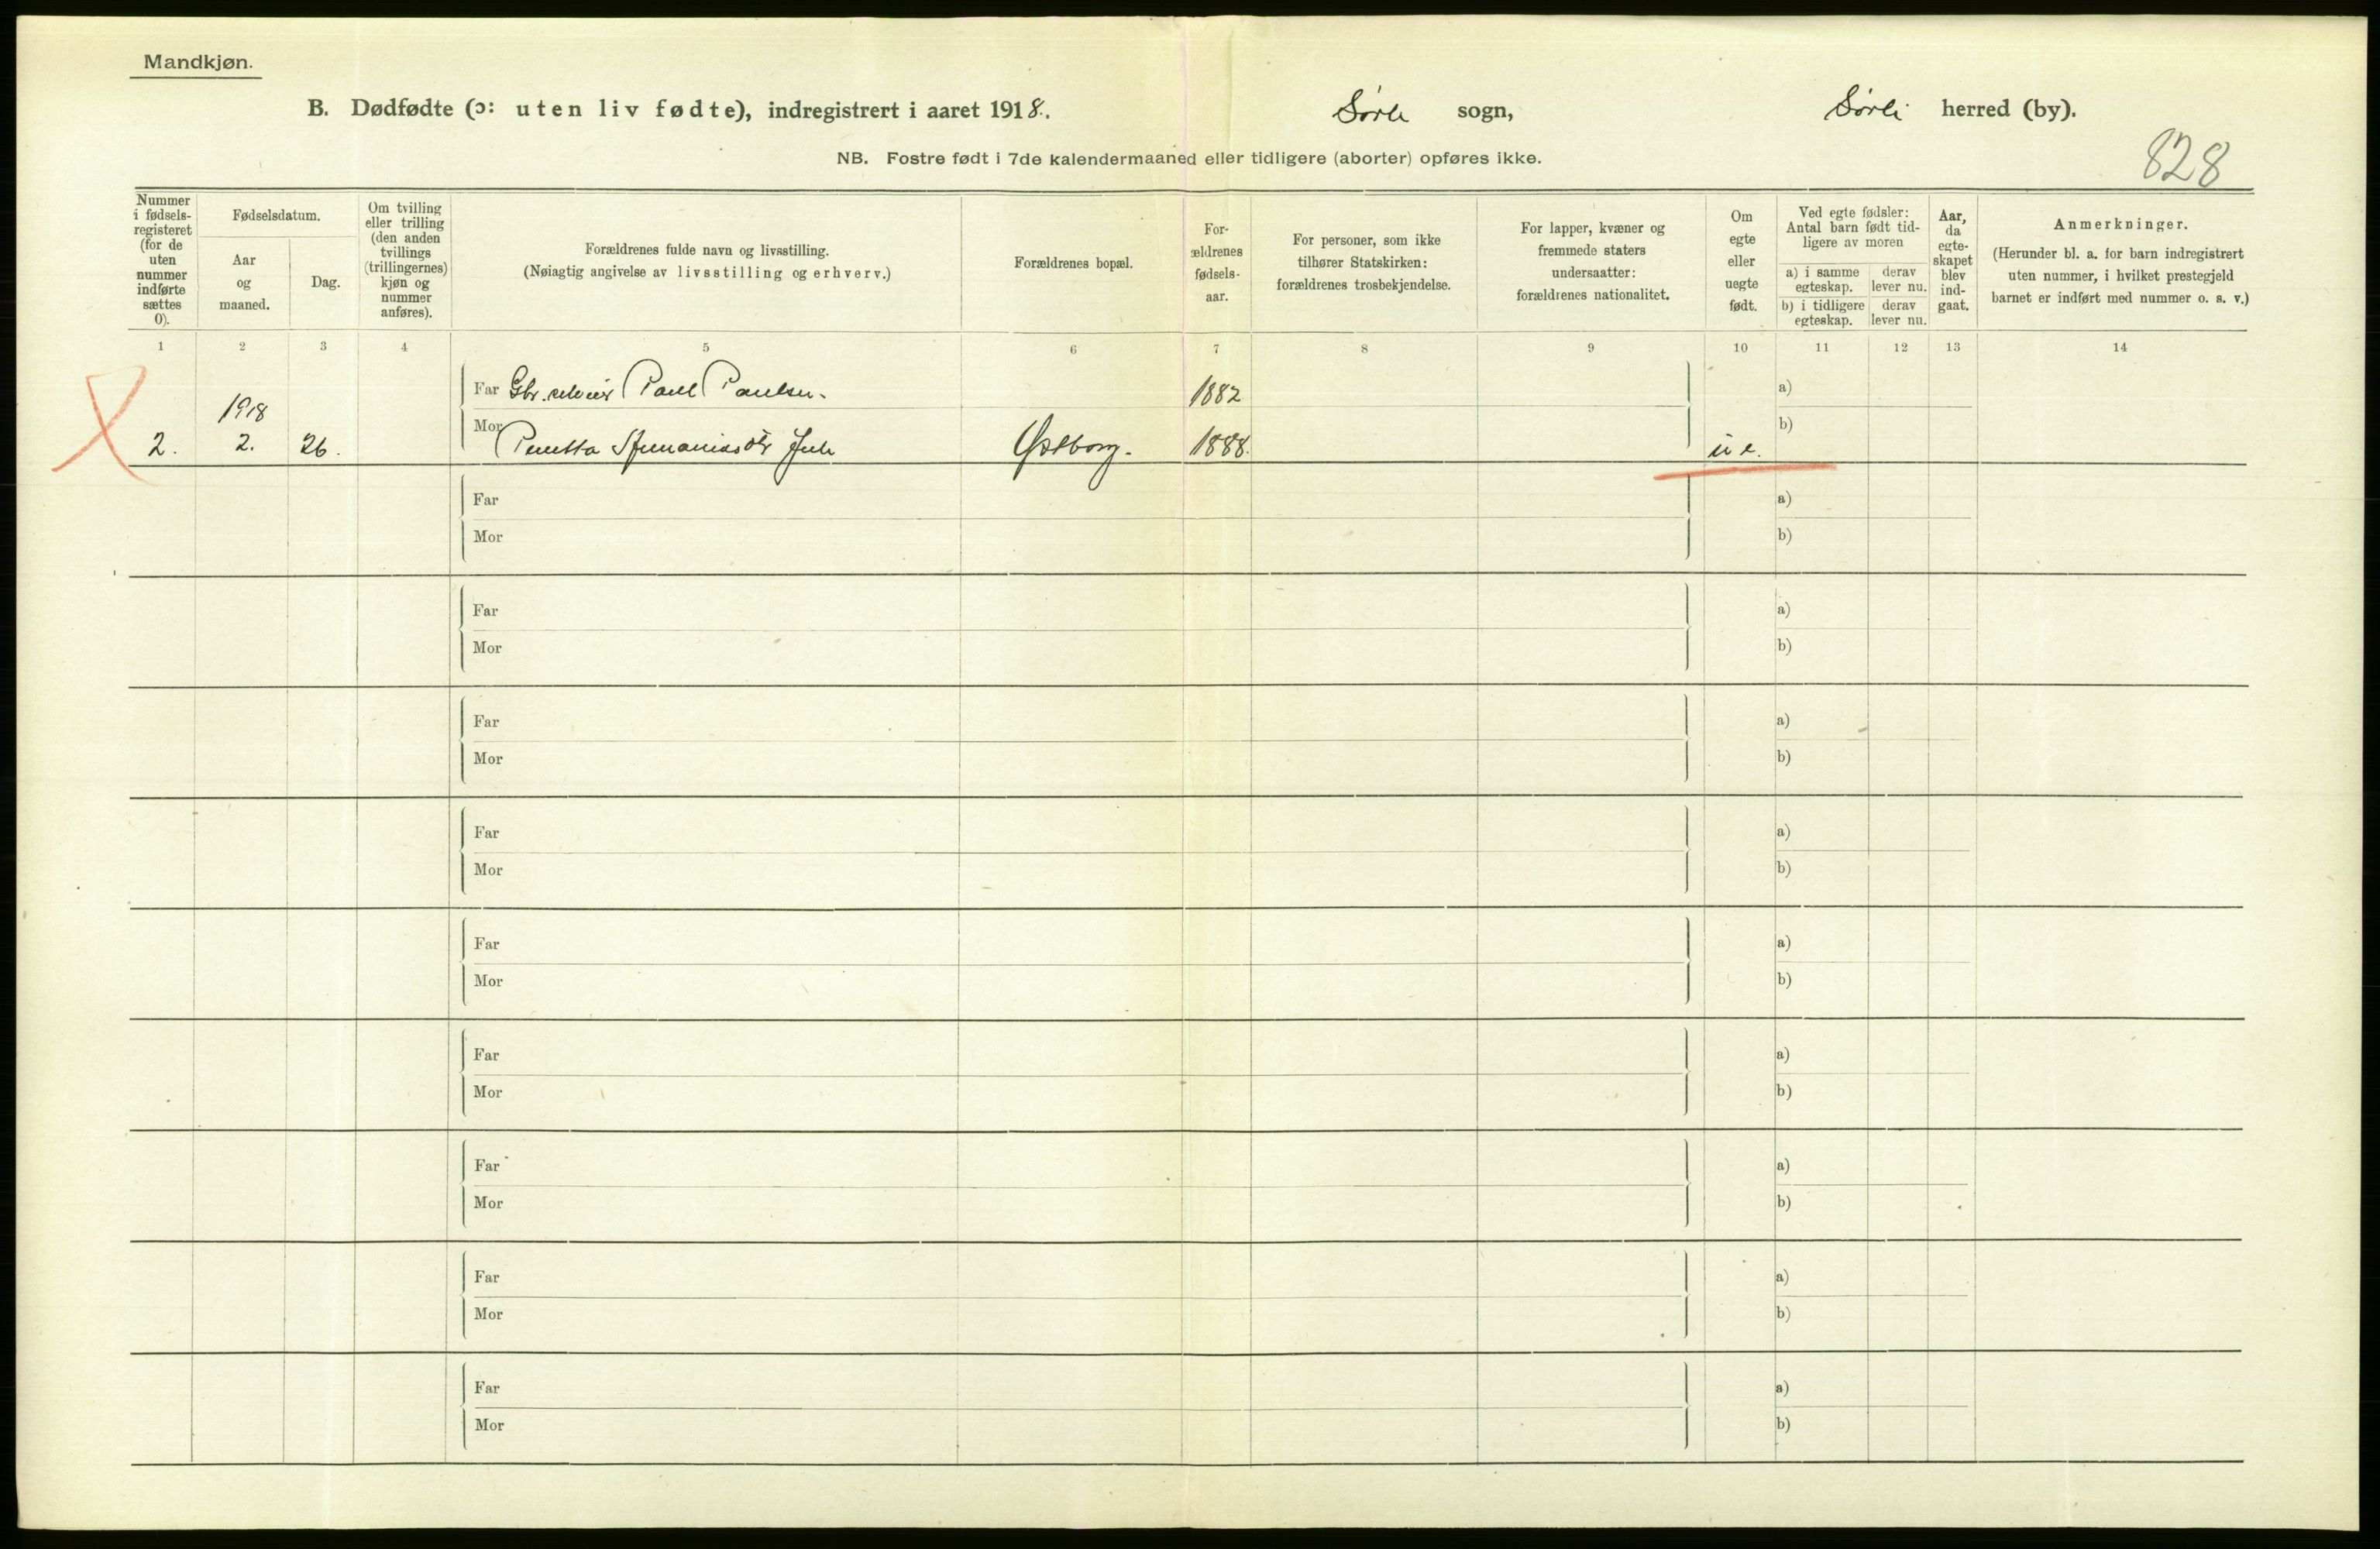 Mandkjøn.
B. Dødfødte (ɔ: uten liv fødte), indregistrert i aaret 1918. Sørli sogn, Sørli herred (by).
NB. Fostre født i 7de kalendermaaned eller tidligere (aborter) opføres ikke.
828
Nummer i fødsels-registeret (for de uten nummer indførte sættes 0).
Fødselsdatum.
Aar og maaned.
Dag.
Om tvilling eller trilling (den anden tvillings (trillingernes) kjøn og nummer anføres).
Forældrenes fulde navn og livsstilling.
(Nøiagtig angivelse av livsstilling og erhverv.)
Forældrenes bopæl.
For-ældrenes fødsels-aar.
For personer, som ikke tilhører Statskirken: forældrenes trosbekjendelse.
For lapper, kvæner og fremmede staters undersaatter: forældrenes nationalitet.
Om egte eller uegte født.
Ved egte fødsler: Antal barn født tid-ligere av moren
a) i samme egteskap. derav lever nu.
b) i tidligere egteskap. derav lever nu.
Aar, da egte-skapet blev ind-gaat.
Anmerkninger.
(Herunder bl. a. for barn indregistrert uten nummer, i hvilket prestegjeld barnet er indført med nummer o. s. v.)
1 2 3 4 5 6 7 8 9 10 11 12 13 14
Far Gbr. Paul Paulsen. 1882 a)
1918
Mor b)
2. 2. 26. Østborg. 1888. u e.
Far a)
Mor b)
Far a)
Mor b)
Far a)
Mor b)
Far a)
Mor b)
Far a)
Mor b)
Far a)
Mor b)
Far a)
Mor b)
Far a)
Mor b)
Far a)
Mor b)